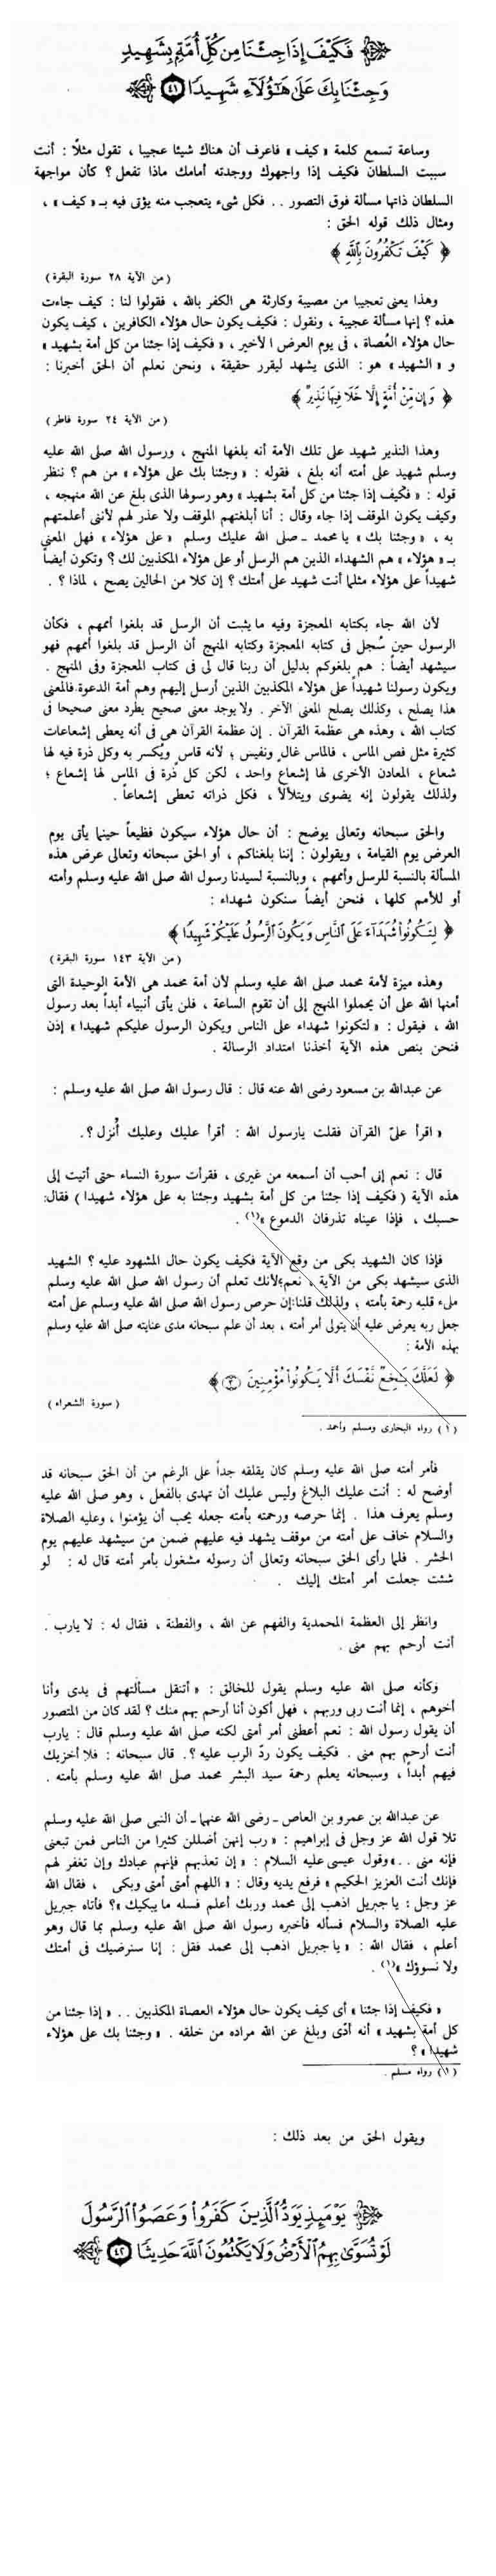 فَكَيْفَ إِذَا جِئْنَا مِن كُلِّ أُمَّةٍ بِشَهِيدٍ
وَجِئْنَا بِكَ عَلَىٰ هَٰٓؤُلَآءِ شَهِيدًا ٤١
وساعة تسمع كلمة « كيف » فاعرف أن هناك شيئا عجيبا ، تقول مثلاً : أنت
سببت السلطان فكيف إذا واجهوك ووجدته أمامك ماذا تفعل ؟ كأن مواجهة
السلطان ذاتها مسألة فوق التصور .. فكل شىء يتعجب منه يؤتى فيه بـ « كيف » ،
ومثال ذلك قوله الحق :
﴿ كَيْفَ تَكْفُرُونَ بِاللَّهِ ﴾
( من الآية ٢٨ سورة البقرة )
وهذا يعنى تعجيبا من مصيبة وكارثة هى الكفر بالله ، فقولوا لنا : كيف جاءت
هذه ؟ إنها مسألة عجيبة ، ونقول : فكيف يكون حال هؤلاء الكافرين ، كيف يكون
حال هؤلاء العُصاة ، فى يوم العرض الأخير ، « فكيف إذا جئنا من كل أمة بشهيد »
و « الشهيد » هو : الذى يشهد ليقرر حقيقة ، ونحن نعلم أن الحق أخبرنا :
﴿ وَإِن مِّنْ أُمَّةٍ إِلَّا خَلَا فِيهَا نَذِيرٌ ﴾
( من الآية ٢٤ سورة فاطر )
وهذا النذير شهيد على تلك الأمة أنه بلغها المنهج ، ورسول الله صلى الله عليه
وسلم شهيد على أمته أنه بلغ ، فقوله : « وجئنا بك على هؤلاء » من هم ؟ ننظر
قوله : « فكيف إذا جئنا من كل أمة بشهيد » وهو رسولها الذى بلغ عن الله منهجه ،
وكيف يكون الموقف إذا جاء وقال : أنا أبلغتهم الموقف ولا عذر لهم لأننى أعلمتهم
به ، « وجئنا بك » يا محمد ـ صلى الله عليك وسلم « على هؤلاء » فهل المعنىّ
بـ « هؤلاء » هم الشهداء الذين هم الرسل أو على هؤلاء المكذبين لك ؟ وتكون أيضاً
شهيداً على هؤلاء مثلما أنت شهيد على أمتك ؟ إن كلا من الحالين يصح ، لماذا ؟ .
لأن الله جاء بكتابه المعجزة وفيه ما يثبت أن الرسل قد بلغوا أممهم ، فكأن
الرسول حين سُجل فى كتابه المعجزة وكتابه المنهج أن الرسل قد بلغوا أممهم فهو
سيشهد أيضاً : هم بلغوكم بدليل أن ربنا قال لى فى كتاب المعجزة وفى المنهج .
ويكون رسولنا شهيداً على هؤلاء المكذبين الذين أرسل إليهم وهم أمة الدعوة.فالمعنى
هذا يصلح ، وكذلك يصلح المعنى الآخر . ولا يوجد معنى صحيح يطرد معنى صحيحا فى
كتاب الله ، وهذه هى عظمة القرآن . إن عظمة القرآن هى فى أنه يعطى إشعاعات
كثيرة مثل فص الماس ، فالماس غالٍ ونفيس ؛ لأنه قاسٍ ويُكسر به وكل ذرة فيه لها
شعاع ، المعادن الأخرى لها إشعاع واحد ، لكن كل ذرة فى الماس لها إشعاع ؛
ولذلك يقولون إنه يضوى ويتلألأ ، فكل ذراته تعطى إشعاعاً .
والحق سبحانه وتعالى يوضح : أن حال هؤلاء سيكون فظيعاً حينما يأتى يوم
العرض يوم القيامة ، ويقولون : إننا بلغناكم ، أو الحق سبحانه وتعالى عرض هذه
المسألة بالنسبة للرسل وأممهم ، وبالنسبة لسيدنا رسول الله صلى الله عليه وسلم وأمته
أو للأمم كلها ، فنحن أيضاً سنكون شهداء :
﴿ لِتَكُونُوا شُهَدَآءَ عَلَى النَّاسِ وَيَكُونَ الرَّسُولُ عَلَيْكُمْ شَهِيدًا ﴾
( من الآية ١٤٣ سورة البقرة )
وهذه ميزة لأمة محمد صلى الله عليه وسلم لأن أمة محمد هى الأمة الوحيدة التى
أمنها الله على أن يحملوا المنهج إلى أن تقوم الساعة ، فلن يأتى أنبياء أبداً بعد رسول
الله ، فيقول : « لتكونوا شهداء على الناس ويكون الرسول عليكم شهيدا » إذن
فنحن بنص هذه الآية أخذنا امتداد الرسالة .
عن عبدالله بن مسعود رضى الله عنه قال : قال رسول الله صلى الله عليه وسلم :
« اقرأ علىّ القرآن فقلت يارسول الله : أقرأ عليك وعليك أُنزل ؟.
قال : نعم إنى أحب أن أسمعه من غيرى ، فقرأت سورة النساء حتى أتيت إلى
هذه الآية ( فكيف إذا جئنا من كل أمة بشهيد وجئنا به على هؤلاء شهيدا ) فقال:
حسبك ، فإذا عيناه تذرفان الدموع »(١) .
فإذا كان الشهيد بكى من وقع الآية فكيف يكون حال المشهود عليه ؟ الشهيد
الذى سيشهد بكى من الآية ، نعم؛لأنك تعلم أن رسول الله صلى الله عليه وسلم
ملىء قلبه رحمة بأمته ، ولذلك قلنا:إن حرص رسول الله صلى الله عليه وسلم على أمته
جعل ربه يعرض عليه أن يتولى أمر أمته ، بعد أن علم سبحانه مدى عنايته صلى الله عليه وسلم
بهذه الأمة :
﴿ لَعَلَّكَ بَٰخِعٌ نَّفْسَكَ أَلَّا يَكُونُوا مُؤْمِنِينَ ٣ ﴾
( سورة الشعراء )
( ١ ) رواه البخارى ومسلم وأحمد .
فأمر أمته صلى الله عليه وسلم كان يقلقه جداً على الرغم من أن الحق سبحانه قد
أوضح له : أنت عليك البلاغ وليس عليك أن تهدى بالفعل ، وهو صلى الله عليه
وسلم يعرف هذا . إنما حرصه ورحمته بأمته جعله يحب أن يؤمنوا ، وعليه الصلاة
والسلام خاف على أمته من موقف يشهد فيه عليهم ضمن من سيشهد عليهم يوم
الحشر . فلما رأى الحق سبحانه وتعالى أن رسوله مشغول بأمر أمته قال له : لو
شئت جعلت أمر أمتك إليك .
وانظر إلى العظمة المحمدية والفهم عن الله ، والفطنة ، فقال له : لا يارب .
أنت أرحم بهم منى .
وكأنه صلى الله عليه وسلم يقول للخالق : « أتنقل مسألتهم فى يدى وأنا
أخوهم ، إنما أنت ربى وربهم ، فهل أكون أنا أرحم بهم منك ؟ لقد كان من المتصور
أن يقول رسول الله : نعم أعطنى أمر أمتى لكنه صلى الله عليه وسلم قال : يارب
أنت أرحم بهم منى . فكيف يكون ردّ الرب عليه ؟. قال سبحانه : فلا أخزيك
فيهم أبداً ، وسبحانه يعلم رحمة سيد البشر محمد صلى الله عليه وسلم بأمته .
عن عبدالله بن عمرو بن العاص ـ رضى الله عنهما ـ أن النبى صلى الله عليه وسلم
تلا قول الله عز وجل فى إبراهيم : « رب إنهن أضللن كثيرا من الناس فمن تبعنى
فإنه منى .. » وقول عيسى عليه السلام : « إن تعذبهم فإنهم عبادك وإن تغفر لهم
فإنك أنت العزيز الحكيم » فرفع يديه وقال : « اللهم أمتى أمتى وبكى ، فقال الله
عز وجل : يا جبريل اذهب إلى محمد وربك أعلم فسله ما يبكيك »؟ فأتاه جبريل
عليه الصلاة والسلام فسأله فأخبره رسول الله صلى الله عليه وسلم بما قال وهو
أعلم ، فقال الله : « يا جبريل اذهب إلى محمد فقل : إنا سنرضيك فى أمتك
ولا نسوؤك »(١) .
« فكيف إذا جئنا » أى كيف يكون حال هؤلاء العصاة المكذبين .. « إذا جئنا من
كل أمة بشهيد » أنه أدّى وبلغ عن الله مراده من خلقه . « وجئنا بك على هؤلاء
شهيدا » ؟
( ١ ) رواه مسلم .
ويقول الحق من بعد ذلك :
يَوْمَئِذٍ يَوَدُّ الَّذِينَ كَفَرُوا وَعَصَوُا الرَّسُولَ
لَوْ تُسَوَّىٰ بِهِمُ الْأَرْضُ وَلَا يَكْتُمُونَ اللَّهَ حَدِيثًا ٤٢